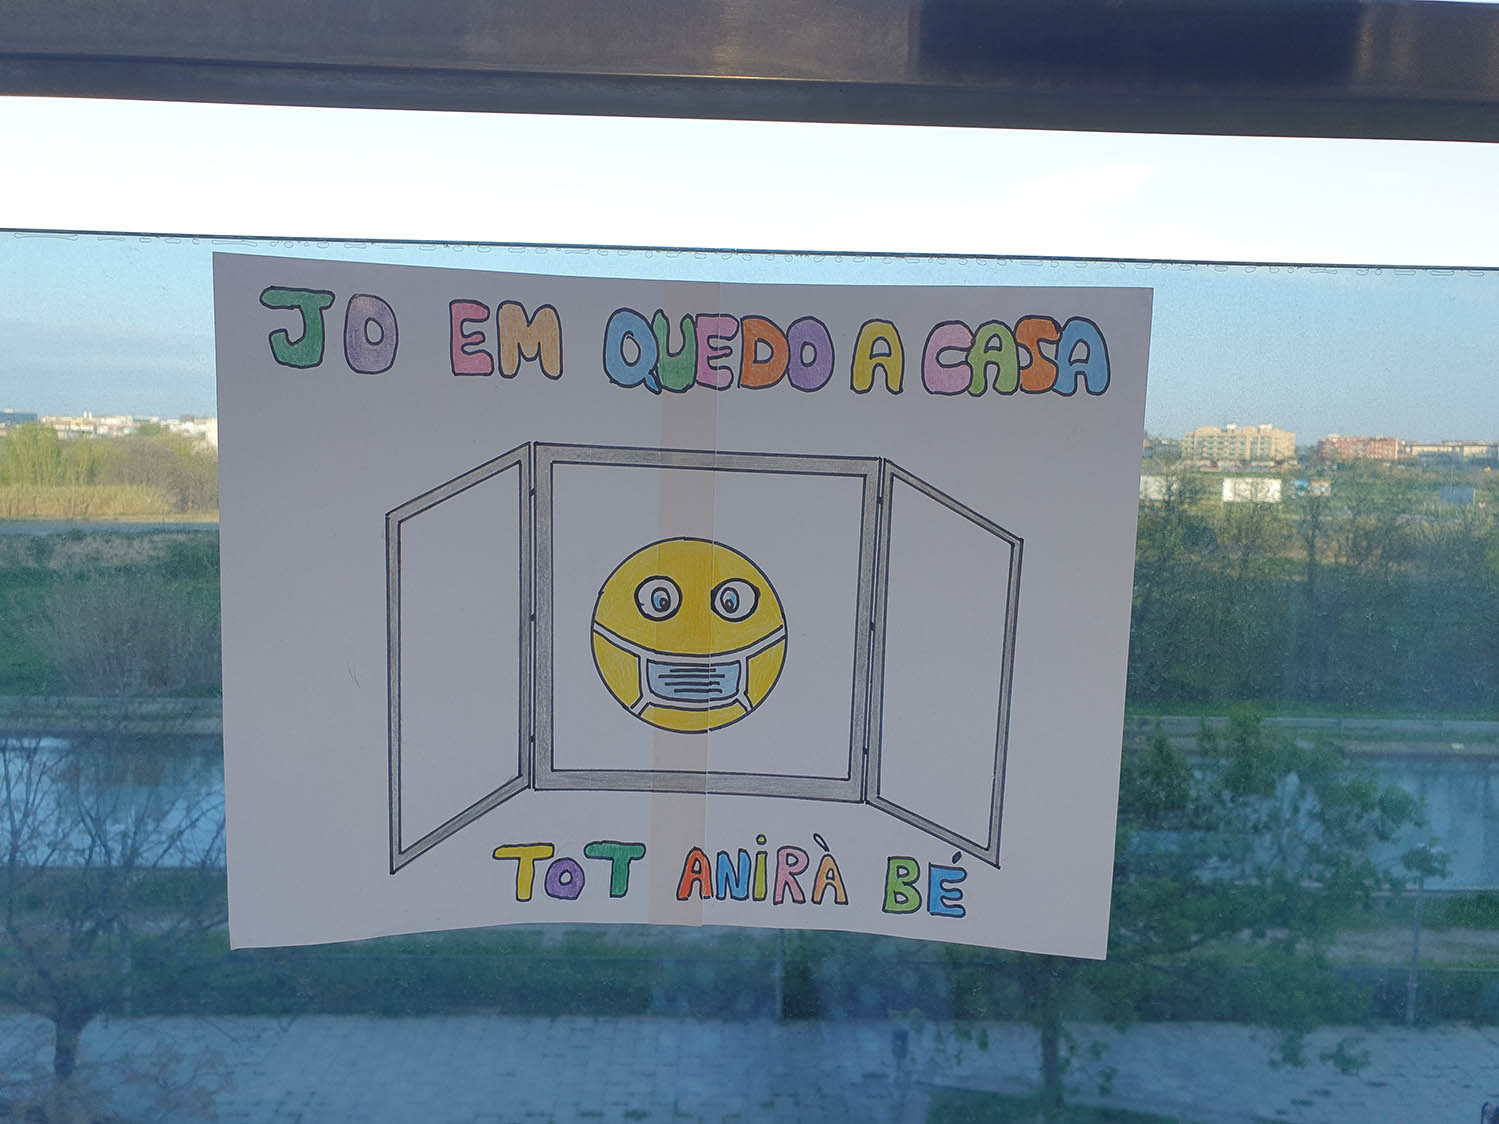 JO EM QUEDO A CASA
TOT ANIRÀ BÉ